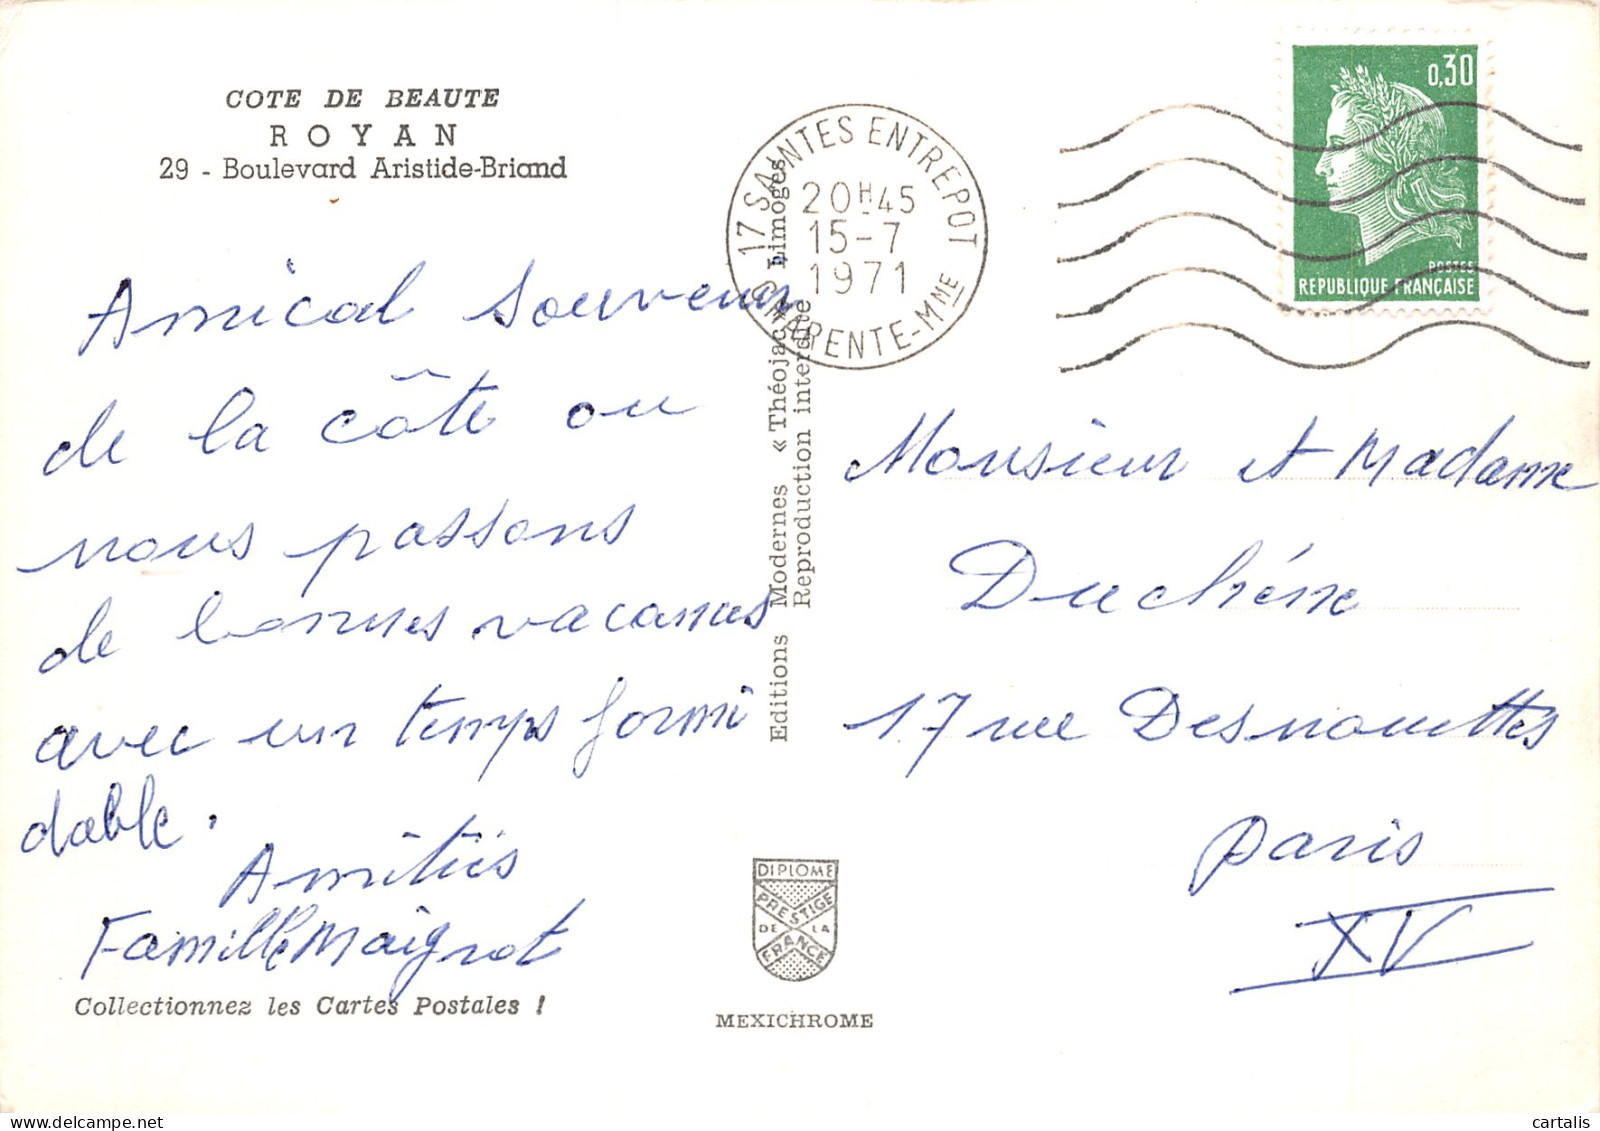 COTE DE BEAUTE
ROYAN
29 - Boulevard Aristide-Briand
Amical souvenir
de la côte ou
nous passons
de bonnes vacances
avec un temps formi
dable.
Amitiés
Famille Maigrot
Collectionnez les Cartes Postales !
Editions Modernes « Théojac » Limoges
Reproduction interdite
DIPLOME
PRESTIGE
DE LA
FRANCE
MEXICHROME
17 SAINTES ENTREPOT
20H45
15-7
1971
CHARENTE-MNE
0,30
POSTES
REPUBLIQUE FRANÇAISE
Monsieur et Madame
Duchéne
17 rue Desnouettes
Paris
XV
cartalis